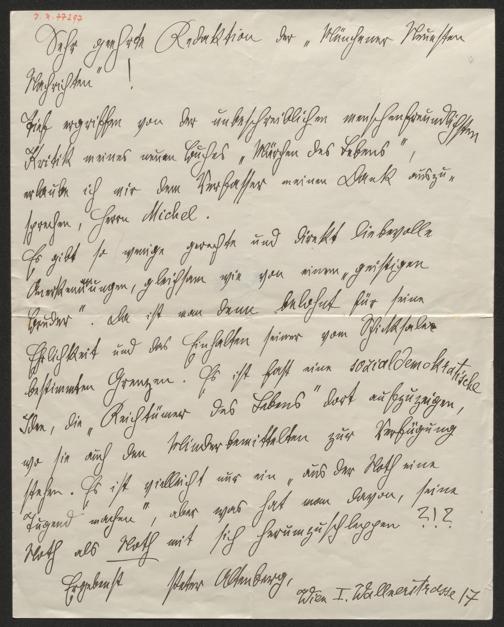 J. N. 77297
Sehr geehrte Redaktion der „Münchener Neuesten
Nachrichten"!
Tief ergriffen von der unbeschreiblichen menschenfreundlichsten
Kritik meines neuen Buches „Märchen des Lebens",
erlaube ich mir dem Verfasser meinen Dank auszu-
sprechen, Herrn Michel.
Es gibt so wenige gerechte und direkt liebevolle
Anerkennungen, gleichsam wie von einem „geistigen
Bruder". Da ist man denn belohnt für seine
Ehrlichkeit und das Einhalten seiner vom Schicksale
bestimmten Grenzen. Es ist fast eine sozialdemokratische
Idee, die „Reichtümer des Lebens" dort aufzuzeigen,
wo sie auch den Minderbemittelten zur Verfügung
stehen. Es ist vielleicht nur ein „aus der Noth eine
Tugend machen", aber was hat man davon, seine
Noth als Noth mit sich herumzuschleppen ?!?
Ergebenst Peter Altenberg,
Wien I. Wallnerstrasse 17